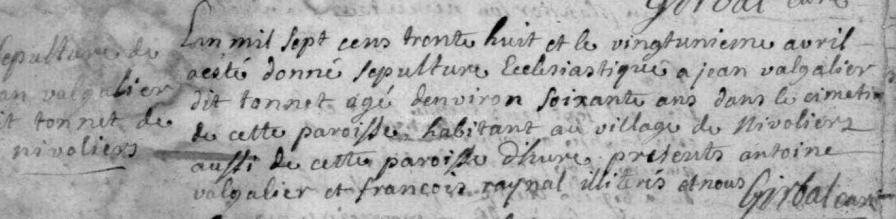 Girbal curé
sepulture de
an valgalier
it tonnet de
nivoliers
Lan mil sept cens trente huit et le vingtunieme avril
aesté donné sepulture Ecclesiastique a jean valgalier
dit tonnet agé denviron soixante ans dans le cimetie
de cette paroisse, habitant au village de Nivoliers
aussi de cette paroisse d'hure presents antoine
valgalier et francois raynal illiterés et nous Girbal curé